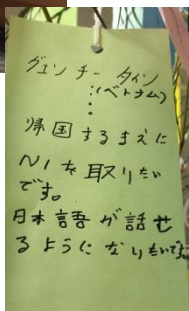 グェン チー タイン
(ベトナム)
帰国するまえに
N1を取りたい
です。
日本語が話せ
るようになりたいです